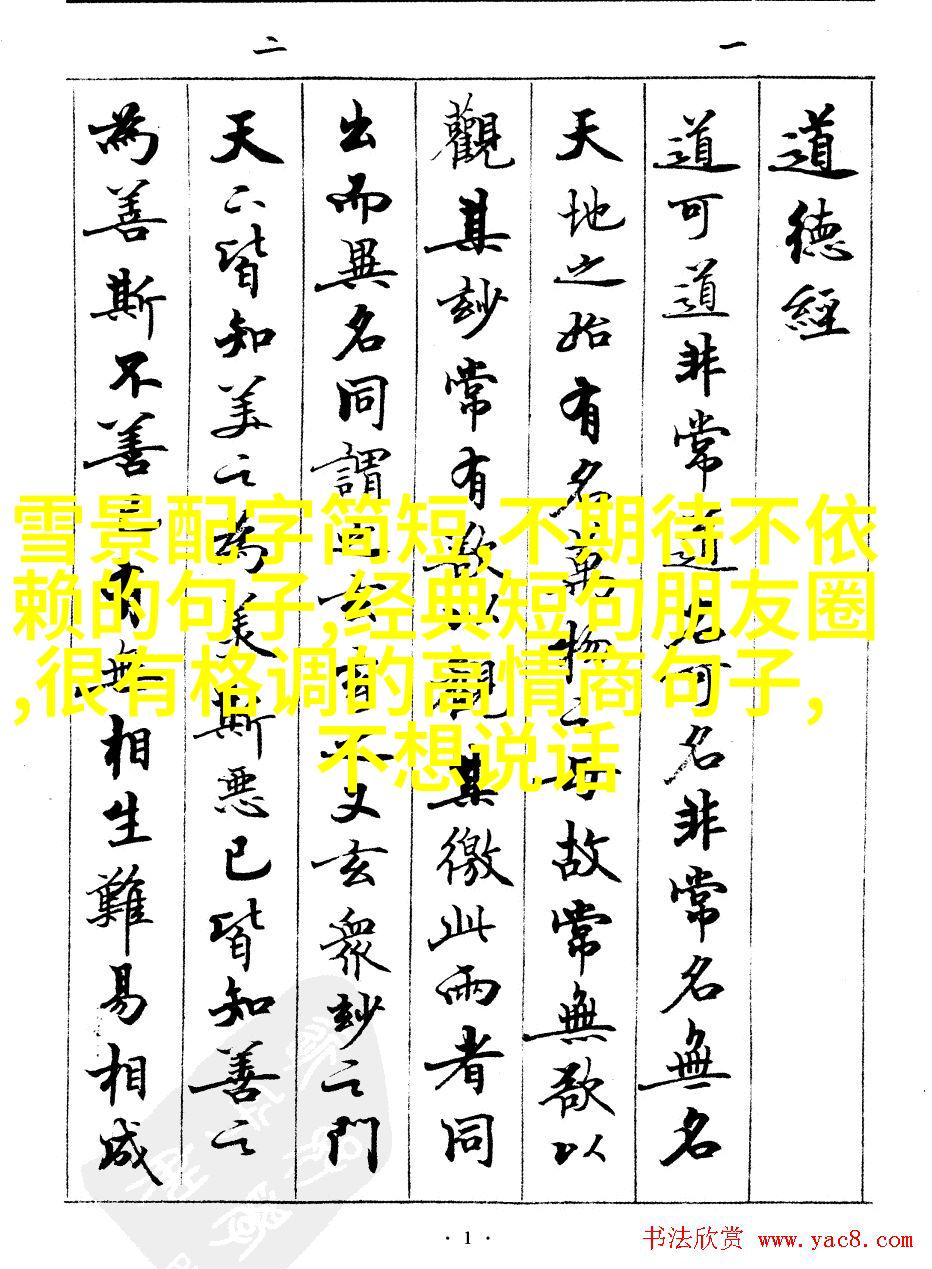 一
二
道德經
道可道非常道名可名非常名無名
天地之始有名萬物之母故常無欲以
觀其玅常有欲以觀其徼此兩者同
出而異名同謂之玄玄之又玄衆玅之門
天下皆知美之為美斯惡已皆知善之
為善斯不善已有無相生難易相成
雪景配字简短,不期待不依
赖的句子,经典短句朋友圈
,很有格调的高情商句子,
不想说话
· 1 ·
书法欣赏 www.yac8.com